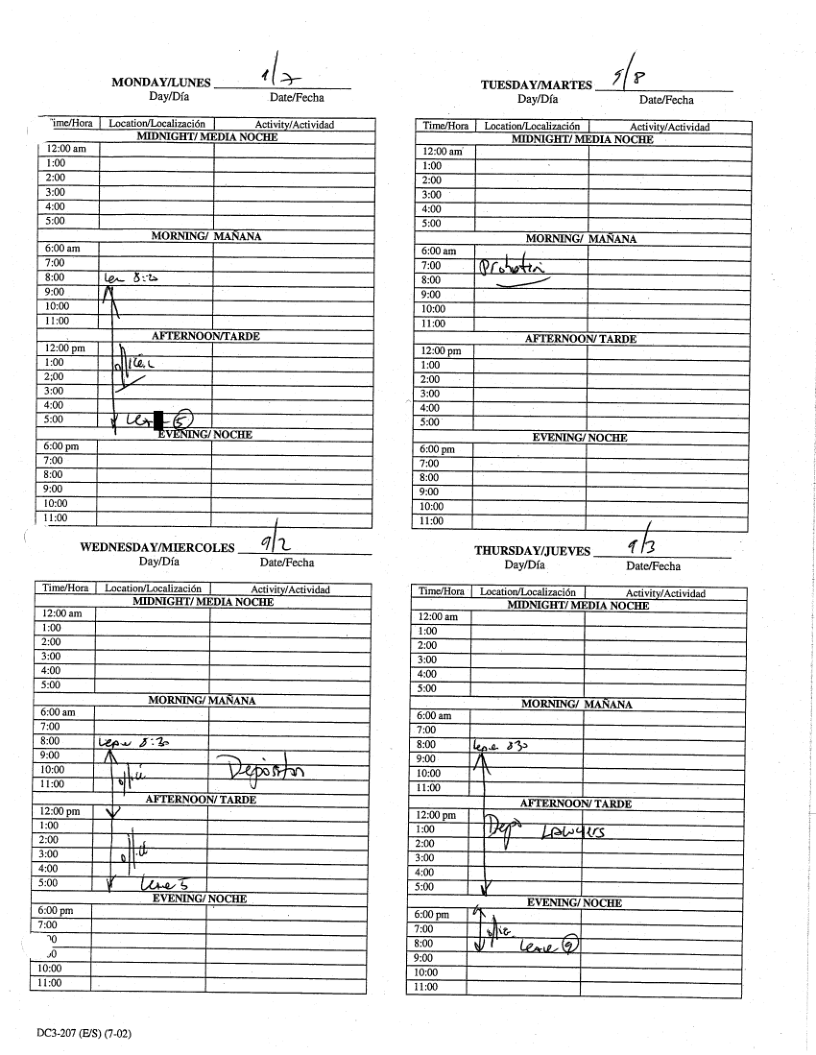 MONDAY/LUNES
Day/Día Date/Fecha
Time/Hora Location/Localización Activity/Actividad
MIDNIGHT/ MEDIA NOCHE
12:00 am
1:00
2:00
3:00
4:00
5:00
MORNING/ MAÑANA
6:00 am
7:00
8:00
9:00
10:00
11:00
AFTERNOON/TARDE
12:00 pm
1:00
2;00
3:00
4:00
5:00 5
EVENING/ NOCHE
6:00 pm
7:00
8:00
9:00
10:00
11:00
TUESDAY/MARTES
Day/Día Date/Fecha
Time/Hora Location/Localización Activity/Actividad
MIDNIGHT/ MEDIA NOCHE
12:00 am
1:00
2:00
3:00
4:00
5:00
MORNING/ MAÑANA
6:00 am
7:00 Probation
8:00
9:00
10:00
11:00
AFTERNOON/ TARDE
12:00 pm
1:00
2:00
3:00
4:00
5:00
EVENING/ NOCHE
6:00 pm
7:00
8:00
9:00
10:00
11:00
WEDNESDAY/MIERCOLES 9/2
Day/Día Date/Fecha
Time/Hora Location/Localización Activity/Actividad
MIDNIGHT/ MEDIA NOCHE
12:00 am
1:00
2:00
3:00
4:00
5:00
MORNING/ MAÑANA
6:00 am
7:00
8:00 8:30
9:00
10:00
11:00
AFTERNOON/ TARDE
12:00 pm
1:00
2:00
3:00
4:00
5:00 5
EVENING/ NOCHE
6:00 pm
7:00
10:00
11:00
THURSDAY/JUEVES 9/3
Day/Día Date/Fecha
Time/Hora Location/Localización Activity/Actividad
MIDNIGHT/ MEDIA NOCHE
12:00 am
1:00
2:00
3:00
4:00
5:00
MORNING/ MAÑANA
6:00 am
7:00
8:00 830
9:00
10:00
11:00
AFTERNOON/ TARDE
12:00 pm
1:00 Depo LAWYERS
2:00
3:00
4:00
5:00
EVENING/ NOCHE
6:00 pm
7:00
8:00 9
9:00
10:00
11:00
DC3-207 (E/S) (7-02)